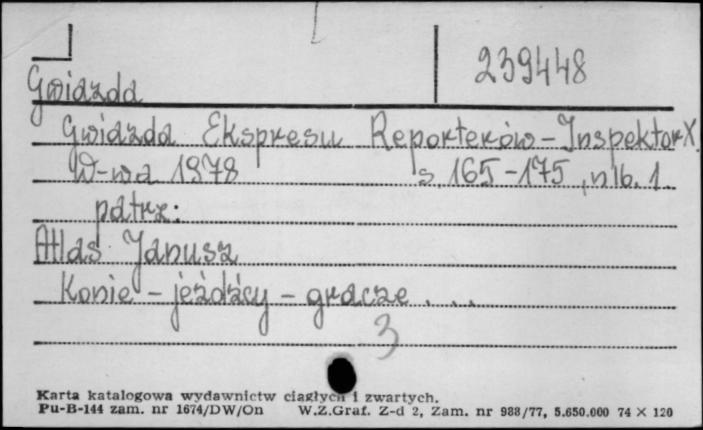 239448
Gwiazda
Gwiazda Ekspresu Reporterów - Inspektor X.
W-wa 1978 s. 165-175, nlb. 1.
patrz:
Atlas Janusz
Konie - jeźdźcy - gracze . . .
3
Karta katalogowa wydawnictw ciągłych i zwartych.
Pu-B-144 zam. nr 1674/DW/On W.Z.Graf. Z-d 2, Zam. nr 988/77, 5.650.000 74 × 120